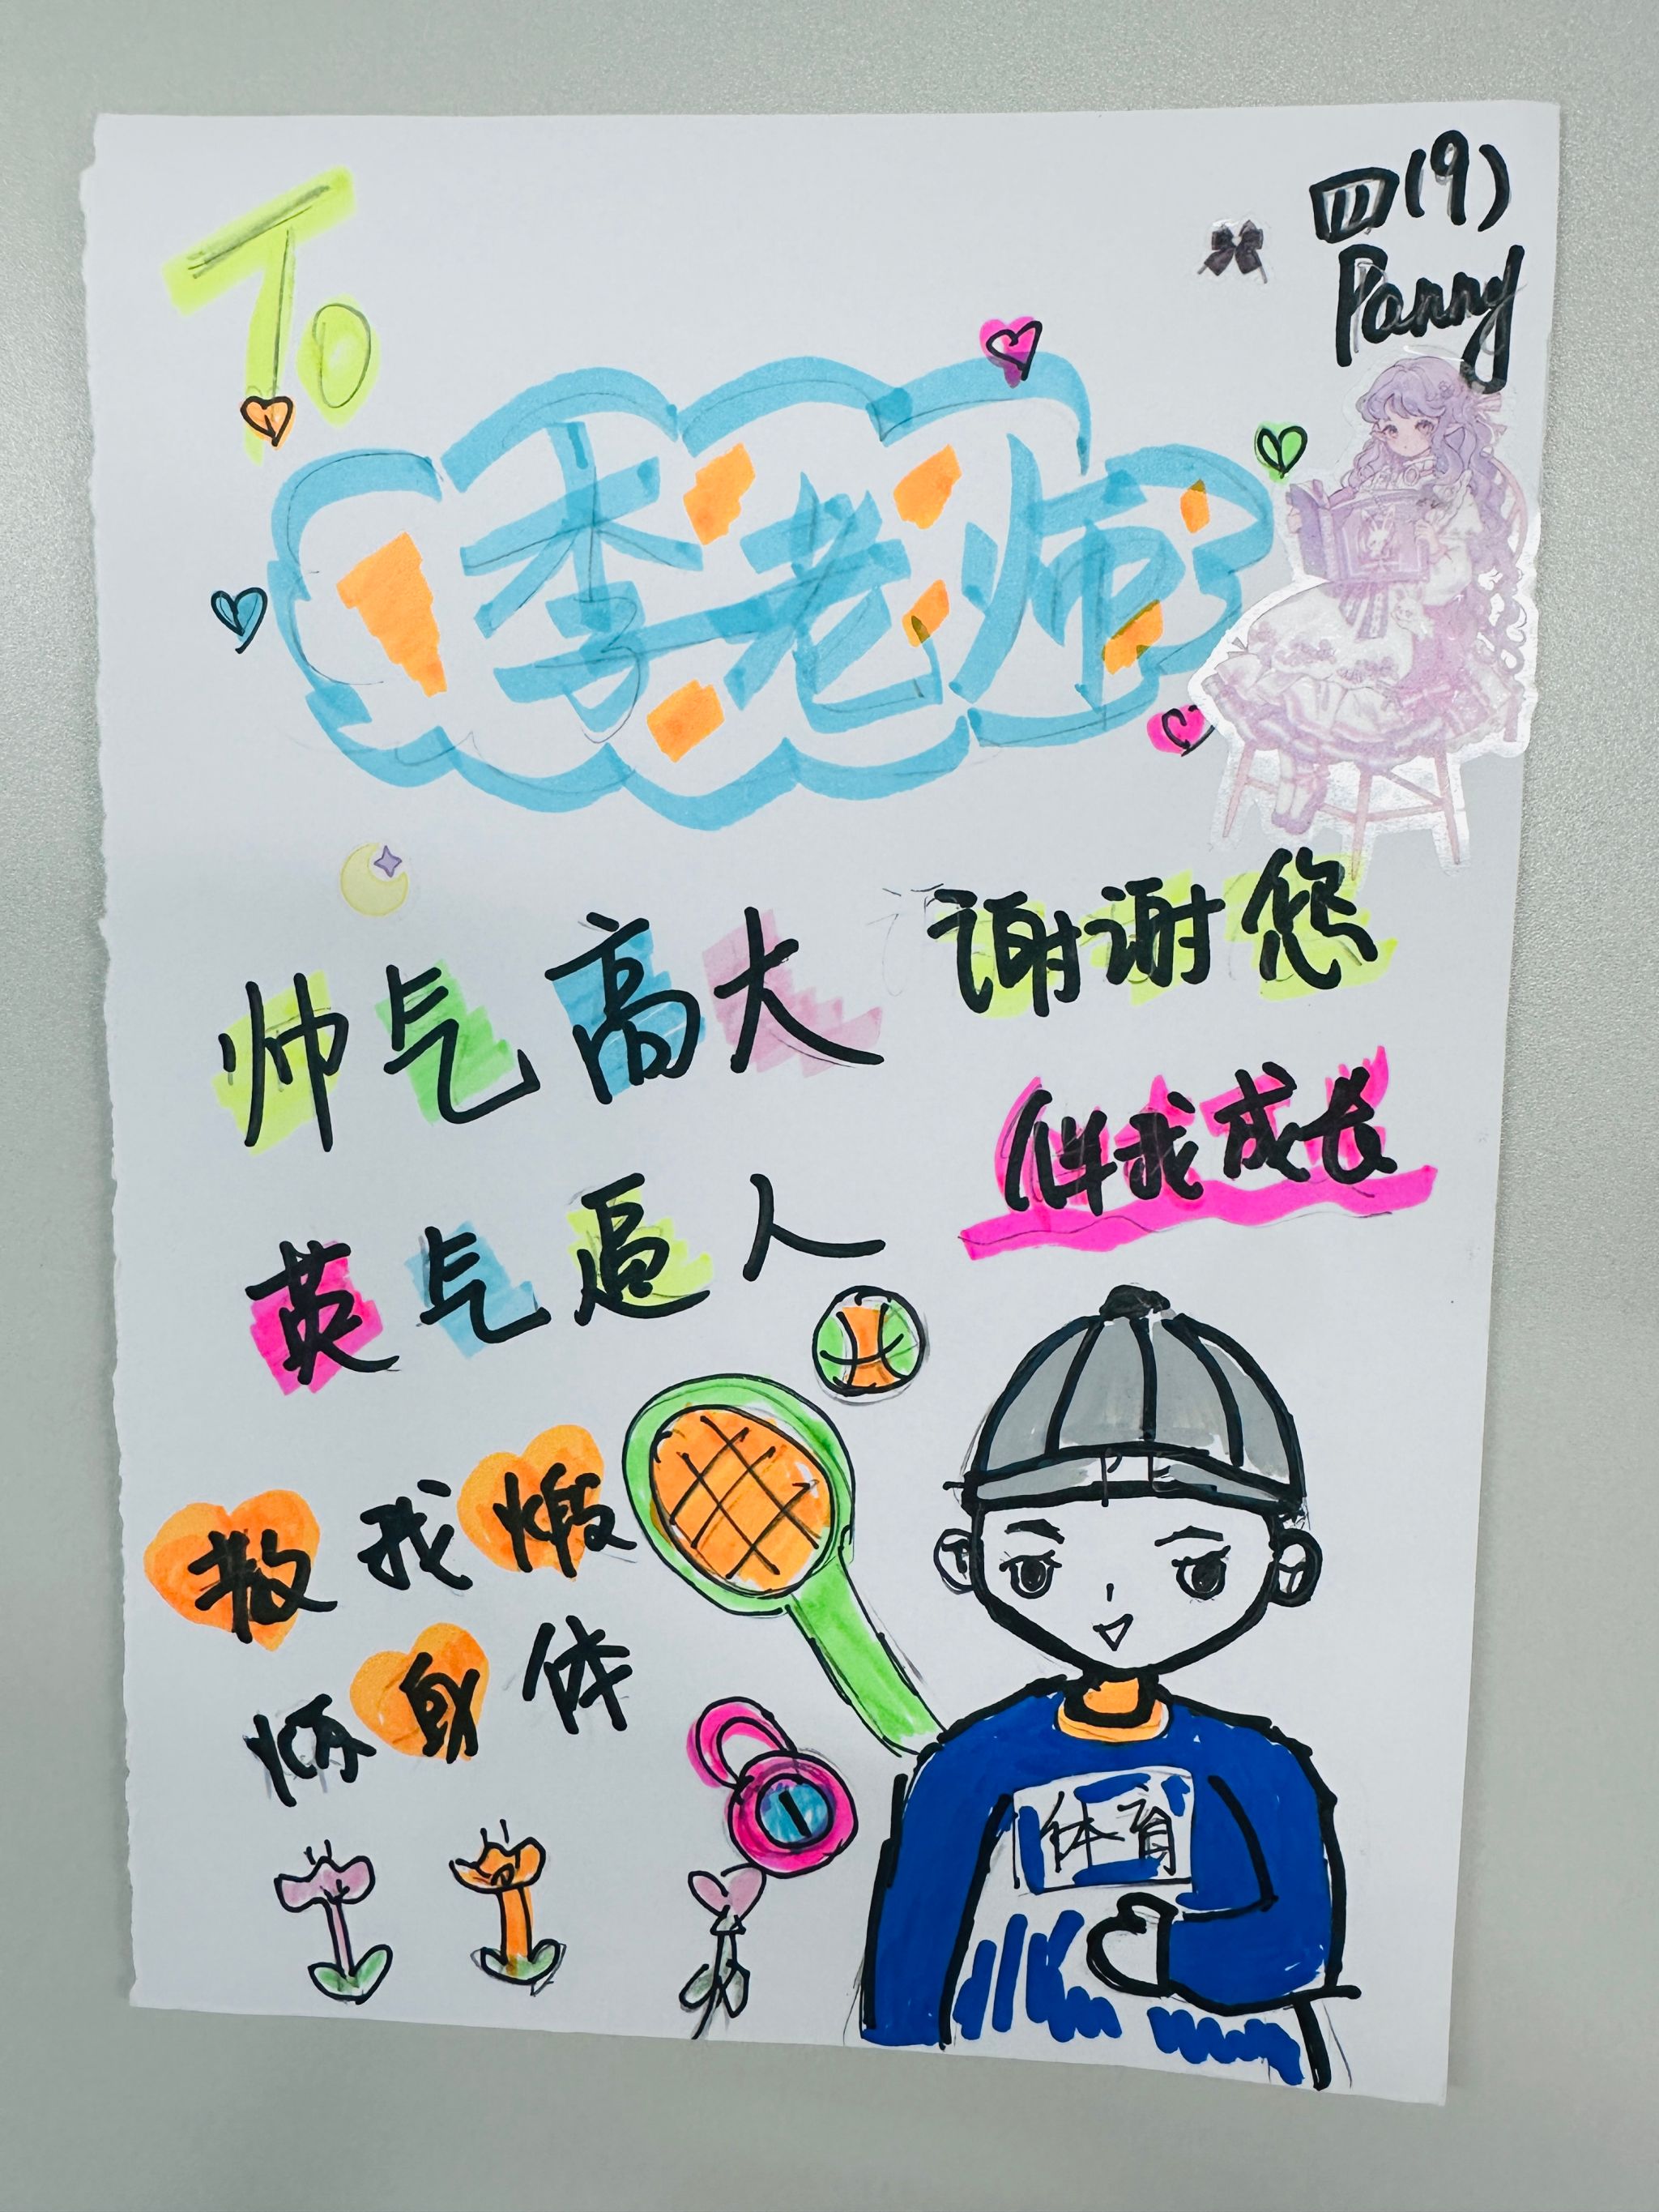 To
四(9)
Panny
李老师
帅气高大
谢谢您
英气逼人
伴我成长
教我锻
炼身体
PE
体育